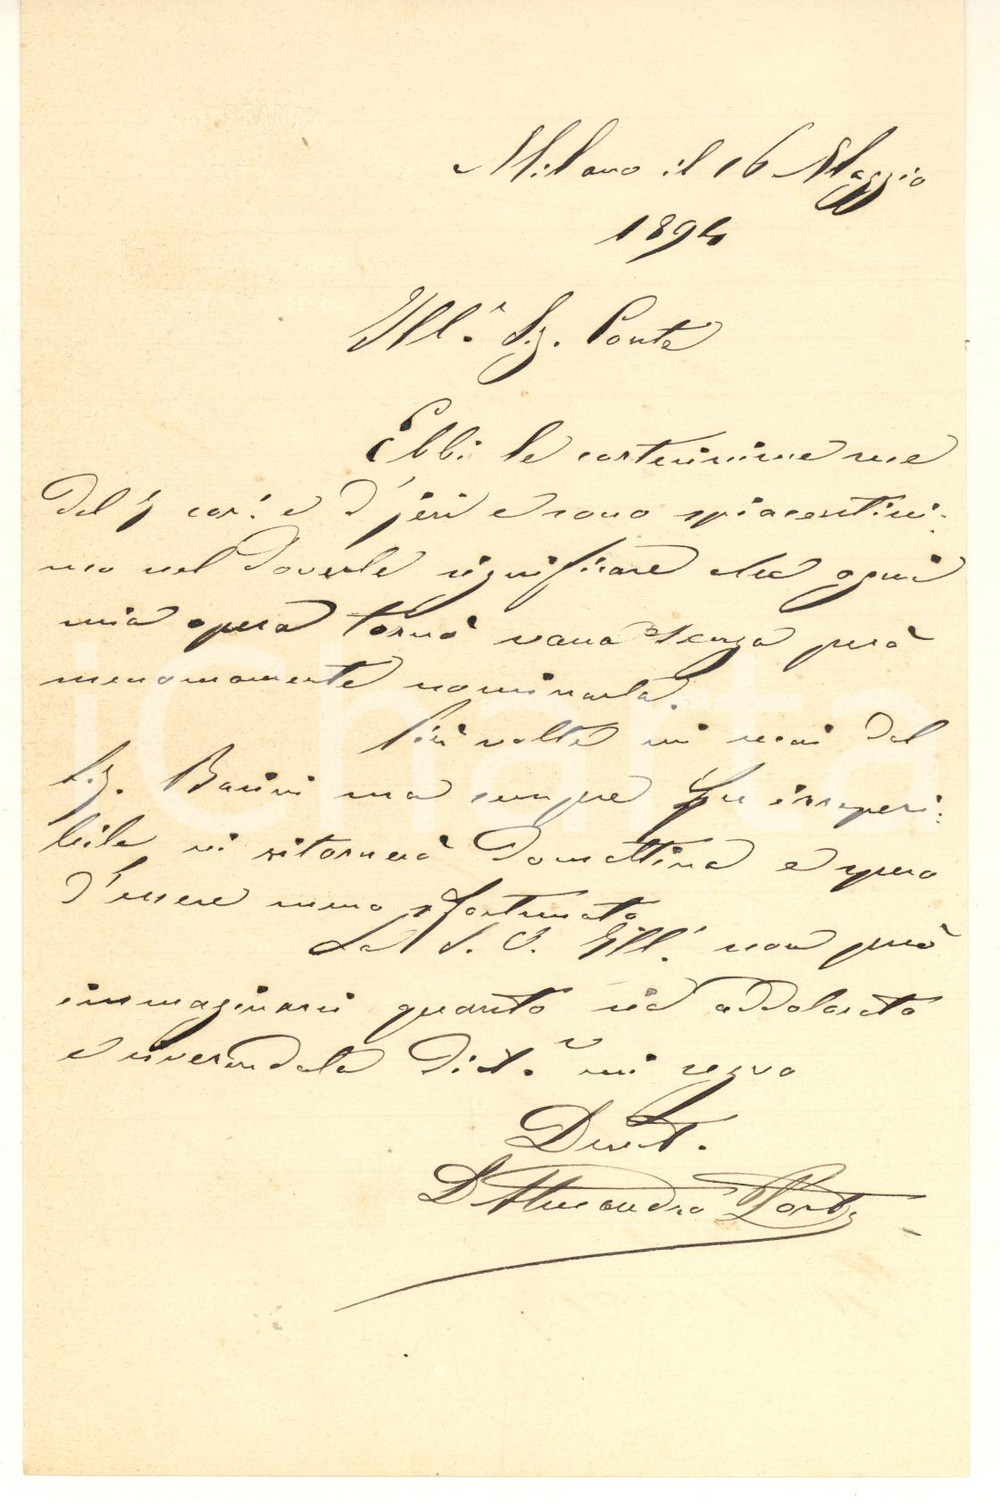 Milano il 16 Maggio
1894
Ill.º Sig. Conte
Ebbi le cortesissime sue
del 7 cor.e e d'jeri e sono spiacentissi:
mo nel doverle significare che ogni
mia opera tornò vana senza però
menomamente nominarla.
Più volte mi recai dal
Sig. Basini ma sempre fu irreperi:
bile vi ritornerò domattina e spero
d'essere meno sfortunato
La S. V. Ill.e non può
immaginarsi quanto sia addolorato
e riverendola Dist.e mi segno
Devot.
D Alessandro Porta
iCharta